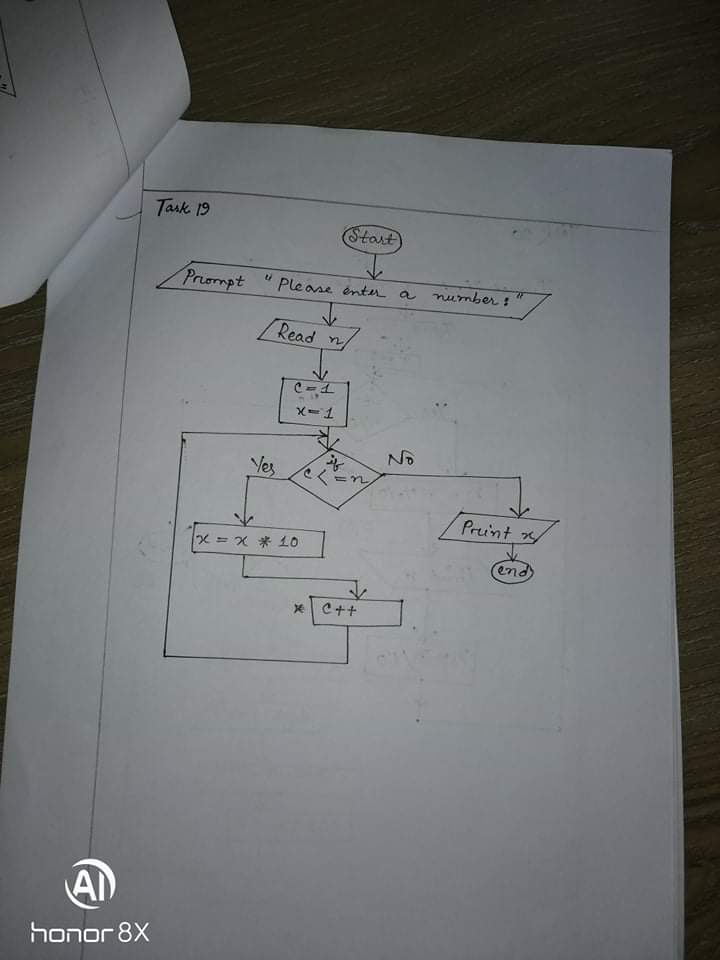 Task 19
Start
Prompt "Please enter a number:"
Read n
c=1
x=1
if
c<=n
Yes
No
x = x * 10
Print x
end
* c++
AI
honor 8X